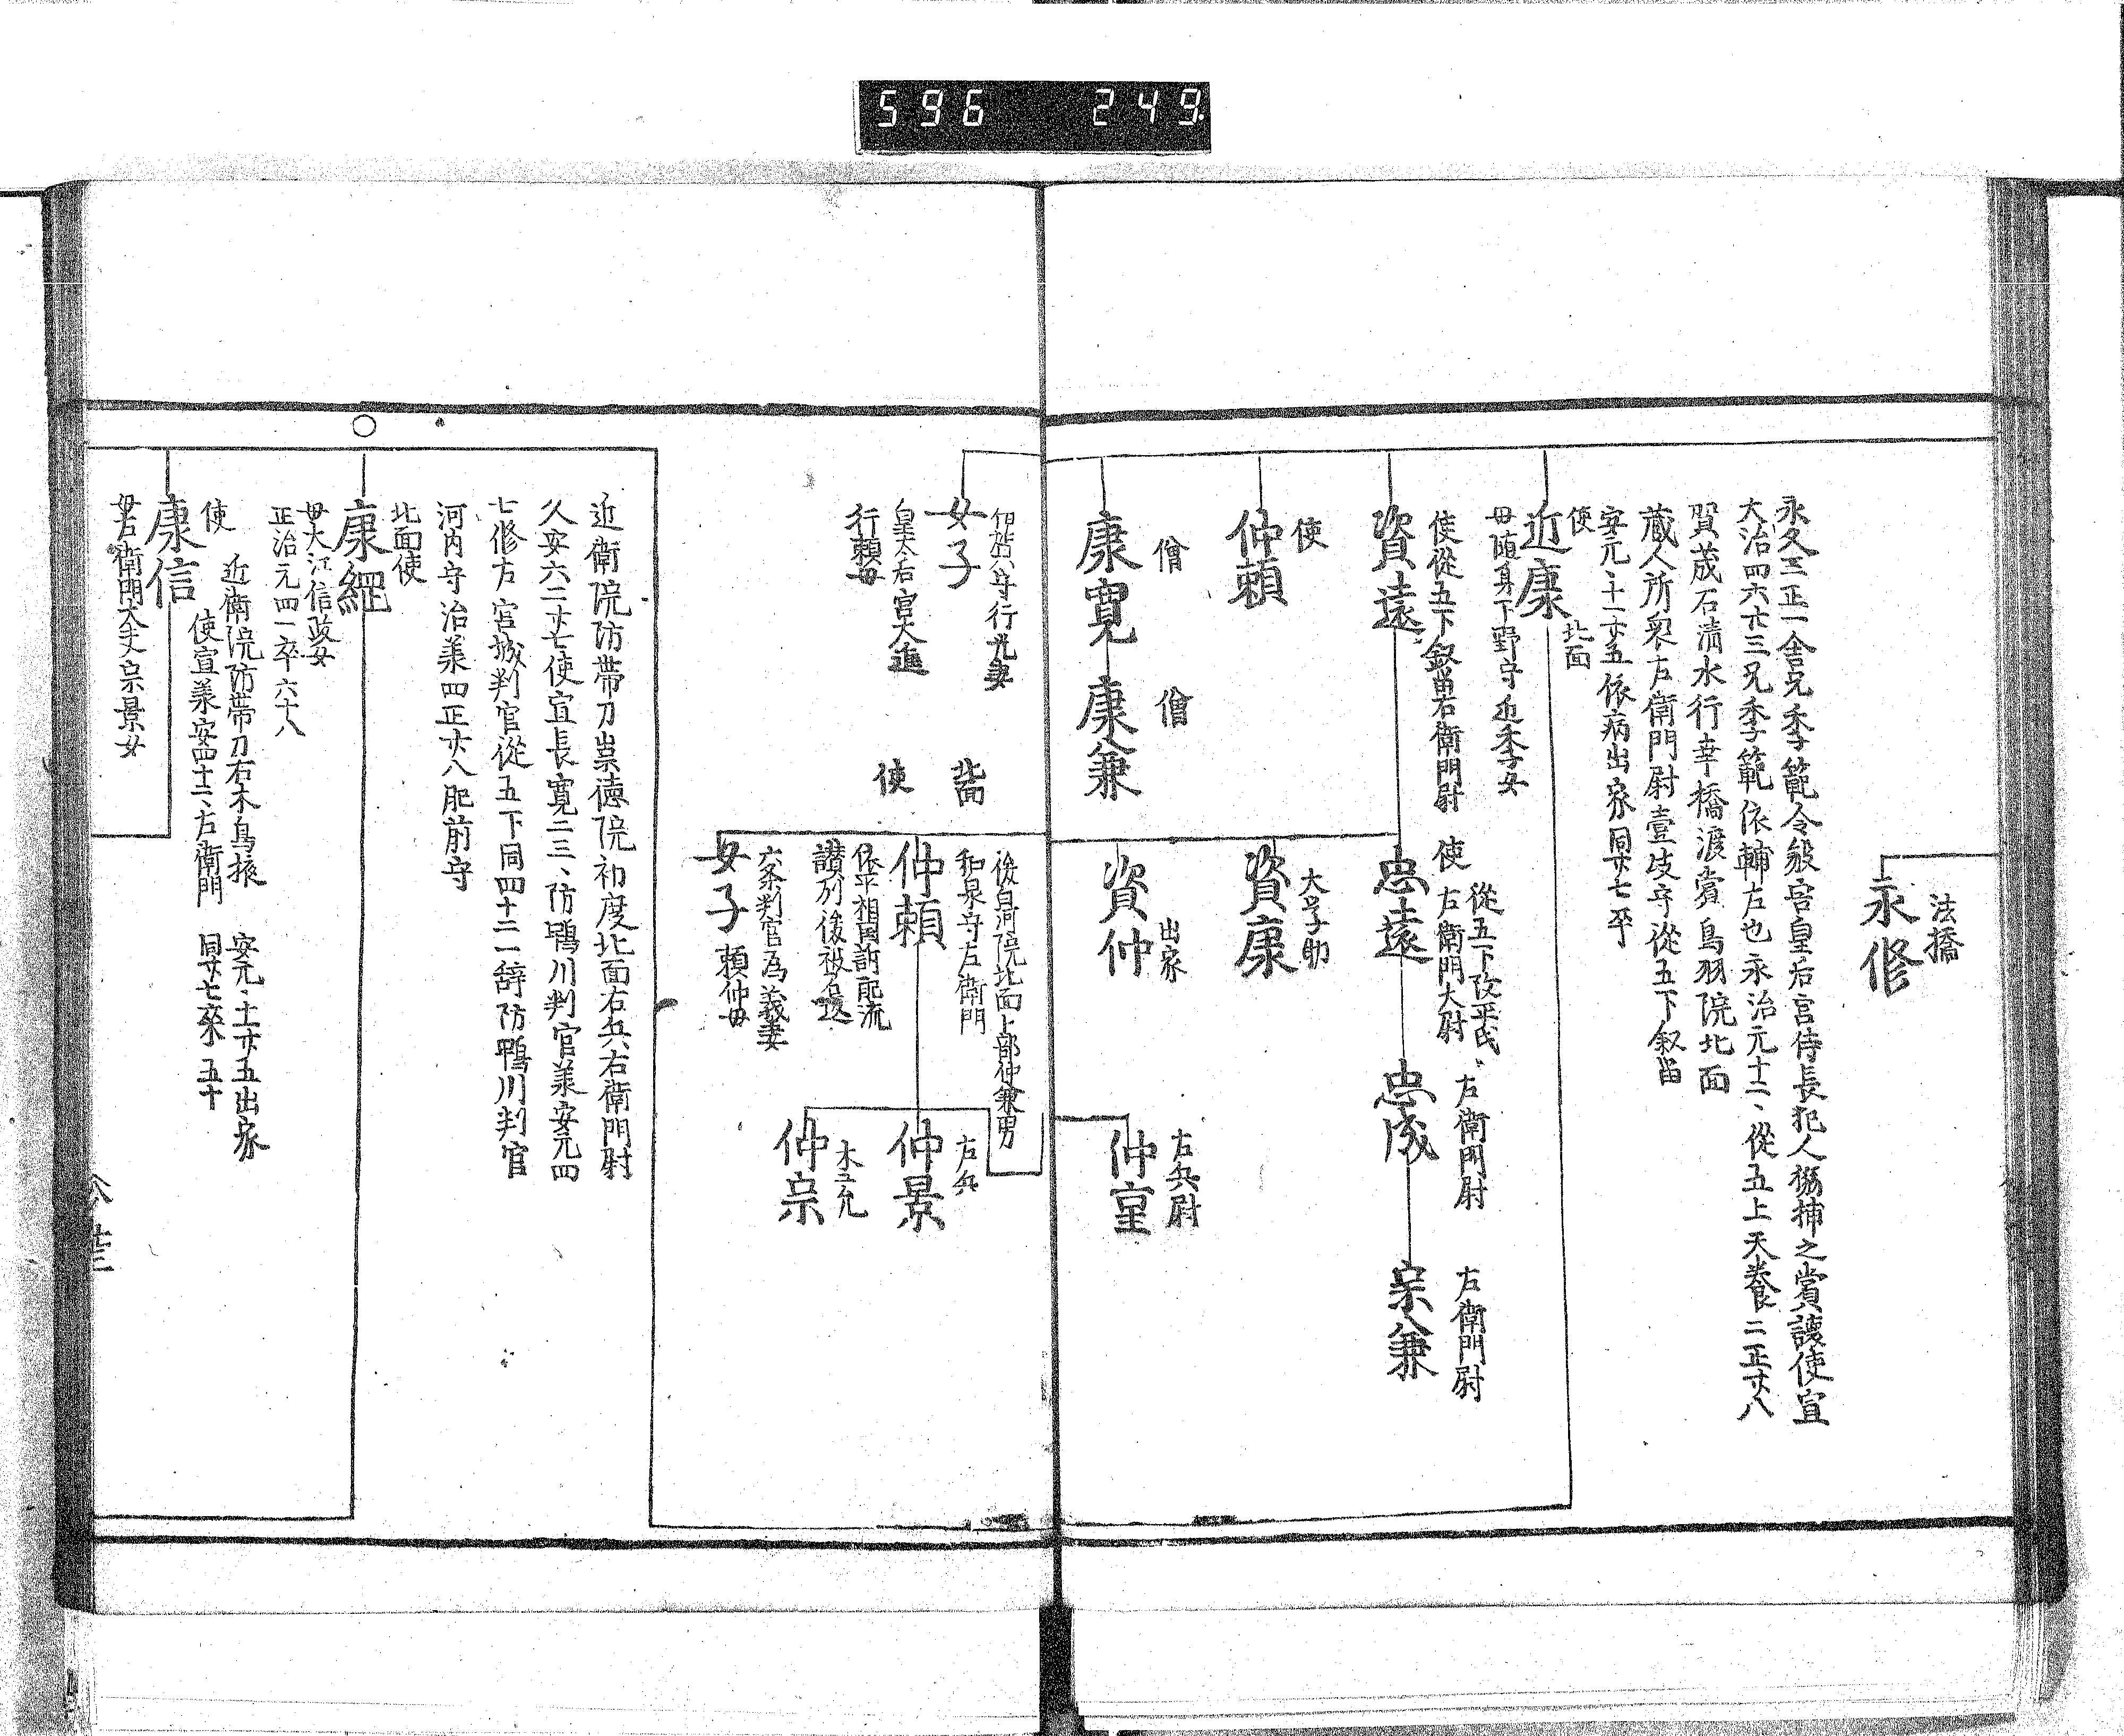 596 249
法橋
永修
永久三正一舎兄季範令殺害皇后宮侍長犯人搦捕之賞譲使宣
大治四六廿三兄季範依輔左也永治元十二、従五上天養二正廿八
賀茂石清水行幸橋渡賞鳥羽院北面
蔵人所衆左衛門尉壹岐守従五下叙畄
安元々十一廿五依病出家同廿七卒
使
近康
北面
母随身下野守近季女
使従五下叙畄右衛門尉
資遠
使
従五下改平氏
左衛門大尉
忠遠
左衛門尉
忠成
左衛門尉
宗兼
使
仲頼
大子助
資康
僧
康寛
僧
康兼
出家
資仲
左兵尉
仲重
守行光妻
女子
皇太后宮大進
行頼母
北面
使
後白河院北面上部仲兼男
和泉守左衛門
仲頼
依平相国訴配流
讃列後被召返
左兵
仲景
木工允
仲宗
六条判官為義妻
女子
頼仲母
近衛院防帯刀崇徳院初度北面右兵右衛門尉
久安六二廿七使宣長寛二三、防鴨川判官兼安元四
七修左官城判官従五下同四十二一辞防鴨川判官
河内守治兼四正廿八肥前守
北面使
康綱
母大江信政女
正治元四一卒六十八
近衛院防帯刀右木鳥掖
安元、十一廿五出家
使
使宣兼安四十二、右衛門
同廿七卒五十
康信
母右衛門大夫宗景女